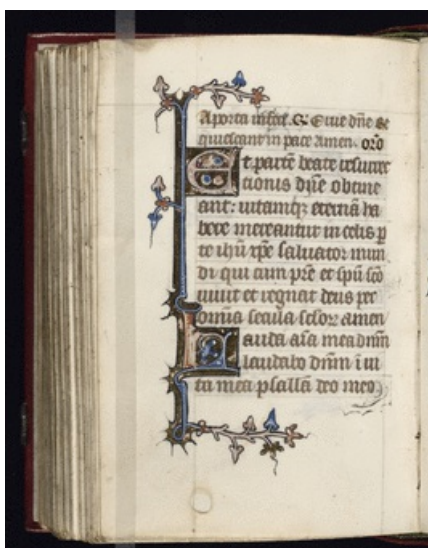 A porta inferi. Erue dñe &
quiescant in pace amen. orõ
Et partē beate resurrec
tionis dñe obtine
ant: uitamqꝫ eternā ha
bere mereantur in celis p
te ihū xp̄e saluator mun
di qui cum pr̄e et spū scō
uiuit et regnat deus per
omnia secula sclor̄ amen
Lauda aīa mea dnm̄
laudabo dn̄m ī ui
ta mea psallā deo meo